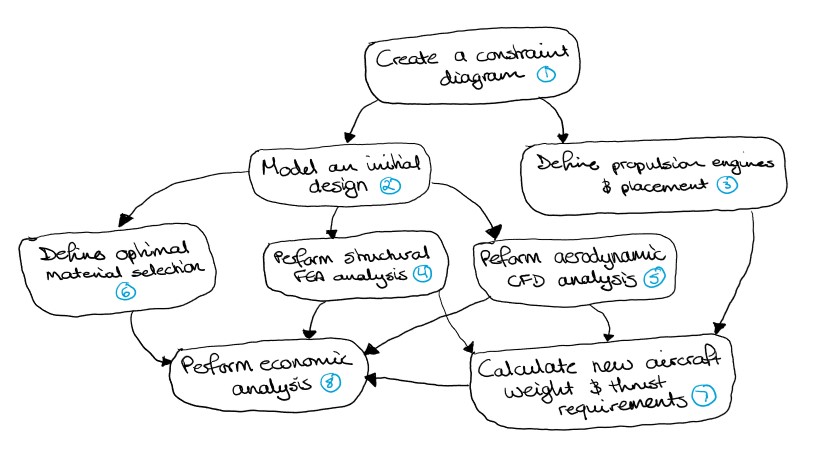 Create a constraint
diagram 1
Model an initial
design 2
Define propulsion engines
& placement 3
Define optimal
material selection
6
Perform structural
FEA analysis 4
Peform aerodynamic
CFD analysis 5
Perform economic
analysis 8
Calculate new aircraft
weight & thrust
requirements 7